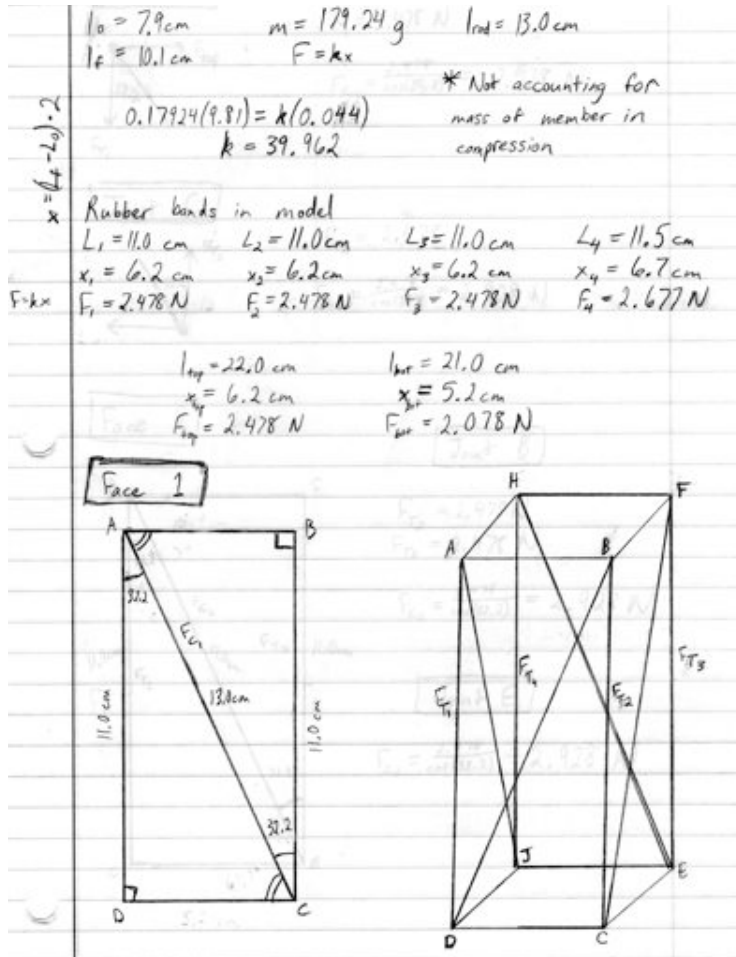 l₀ = 7.9cm m = 179.24 g l_rod = 13.0 cm
l_f = 10.1 cm F = kx
* Not accounting for
0.17924(9.81) = k(0.044) mass of member in
k = 39.962 compression
x = (L_f - L₀) · 2
Rubber bands in model
L₁ = 11.0 cm L₂ = 11.0cm L₃ = 11.0cm L₄ = 11.5 cm
x₁ = 6.2 cm x₂ = 6.2cm x₃ = 6.2 cm x₄ = 6.7 cm
F=kx F₁ = 2.478 N F₂ = 2.478 N F₃ = 2.478 N F₄ = 2.677 N
l_top = 22.0 cm l_bot = 21.0 cm
x_top = 6.2 cm x_bot = 5.2 cm
F_top = 2.478 N F_bot = 2.078 N
Face 1
A B
32.2
13.0cm
11.0 cm
11.0 cm
32.2
D C
H F
A B
F_T₁ F_T₄ F_T₂ F_T₃
J E
D C